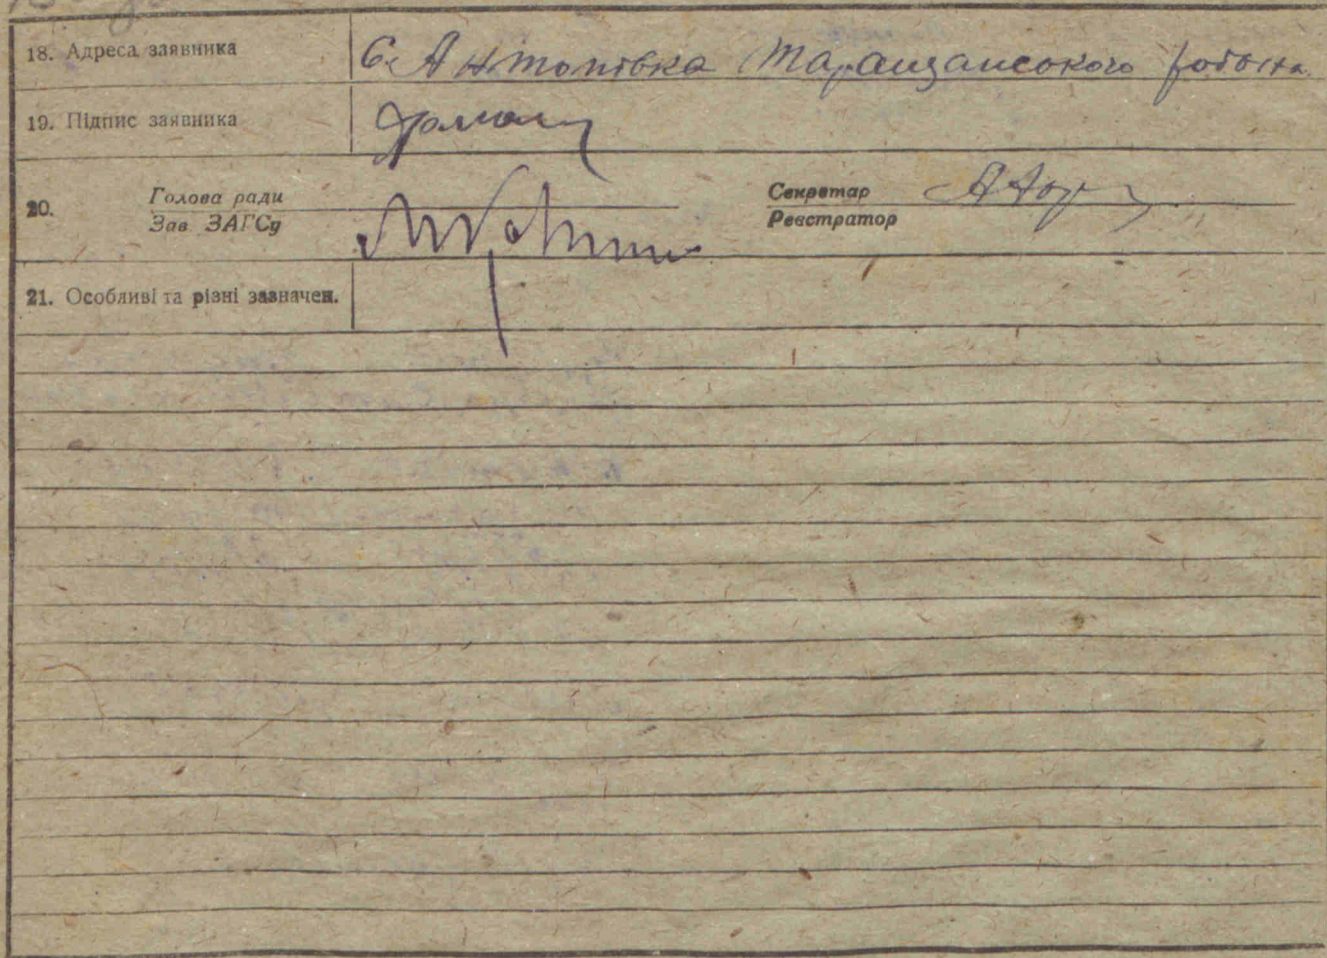 18. Адреса заявника С. Антонівка Таращанського
19. Підпис заявника
20. Голова ради Секретар
Зав ЗАГСу Реєстратор
21. Особливі та різні зазначен.